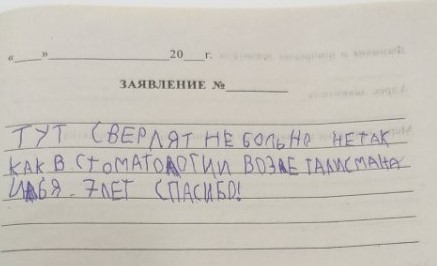 «____»____________________20___г.
ЗАЯВЛЕНИЕ №________
ТУТ СВЕРЛЯТ НЕ БОЛЬНО НЕТАК
КАК В СТОМАТОЛОГИИ ВОЗЛЕ ТАЛИСМАНА
7ЛЕТ СПАСИБО!